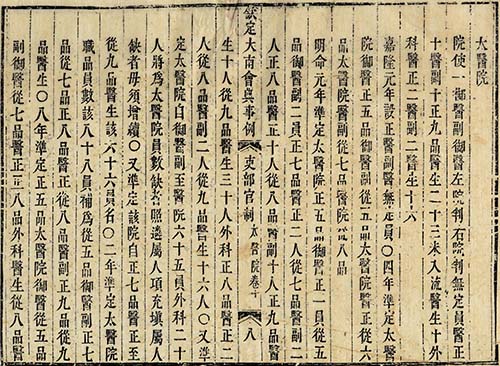 太醫院
院使一御醫副御醫左院判右院判無定員醫正
十醫副十正九品醫生二十三未入流醫生十外
科醫正二醫副二醫生十六
嘉隆元年設正醫副醫無定員○四年準定太醫
院御醫正五品御醫副從五品太醫院醫正從六
品太醫院醫副從七品醫院從八品
明命元年準定太醫院正五品御醫正一員從五
品御醫副二員正七品醫正二人從七品醫副二
人正八品醫正十人從八品醫副十人正九品醫
欽定大南會典事例 吏部官制 太醫院 卷十 八
生十人從九品醫生三十人外科正八品醫正二
人從八品醫副二人從九品醫生十六人○又準
定太醫院自御醫副至醫院六十五員外科二十
人將為太醫院員數缺者照遴屬人項充填屬人
缺者毋須增續○又準定該院自正七品醫正至
從九品醫生該六十六員名○二年準定太醫院
職品員數該八十八員補為從五品御醫副正七
品從七品正八品醫正從八品醫副正九品從九
品醫生○八年準定正五品太醫院御醫從五品
副御醫從七品醫正正八品外科醫生從八品